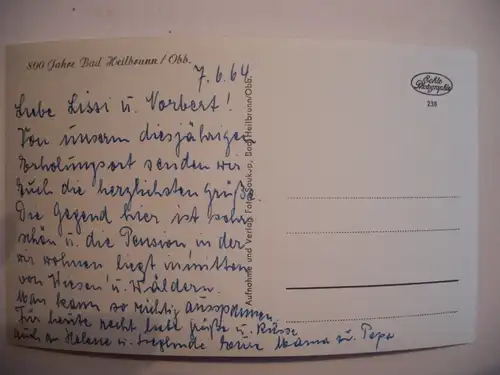 800 Jahre Bad Heilbrunn / Obb.
7.6.64
Liebe Lissi u. Norbert!
Von unserem diesjährigen
Erholungsort senden wir
Euch die herzlichsten Grüße.
Die Gegend hier ist sehr
schön u. die Pension in der
wir wohnen liegt inmitten
von Wiesen u. Wäldern.
Man kann so richtig ausspannen.
Für heute recht liebe Grüße u. Küsse
auch an Helene u. Sieglinde Eure Mama u. Papa
Aufnahme und Verlag Foto, Bad Heilbrunn/Obb.
Echte Photographie
238